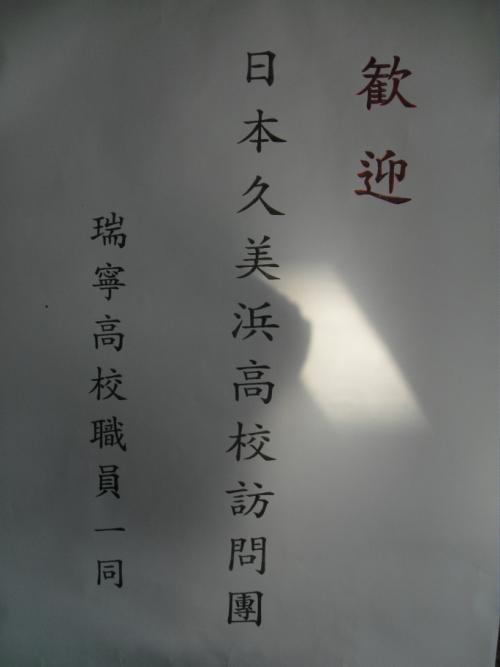 歓迎
日本久美浜高校訪問團
瑞寧高校職員一同